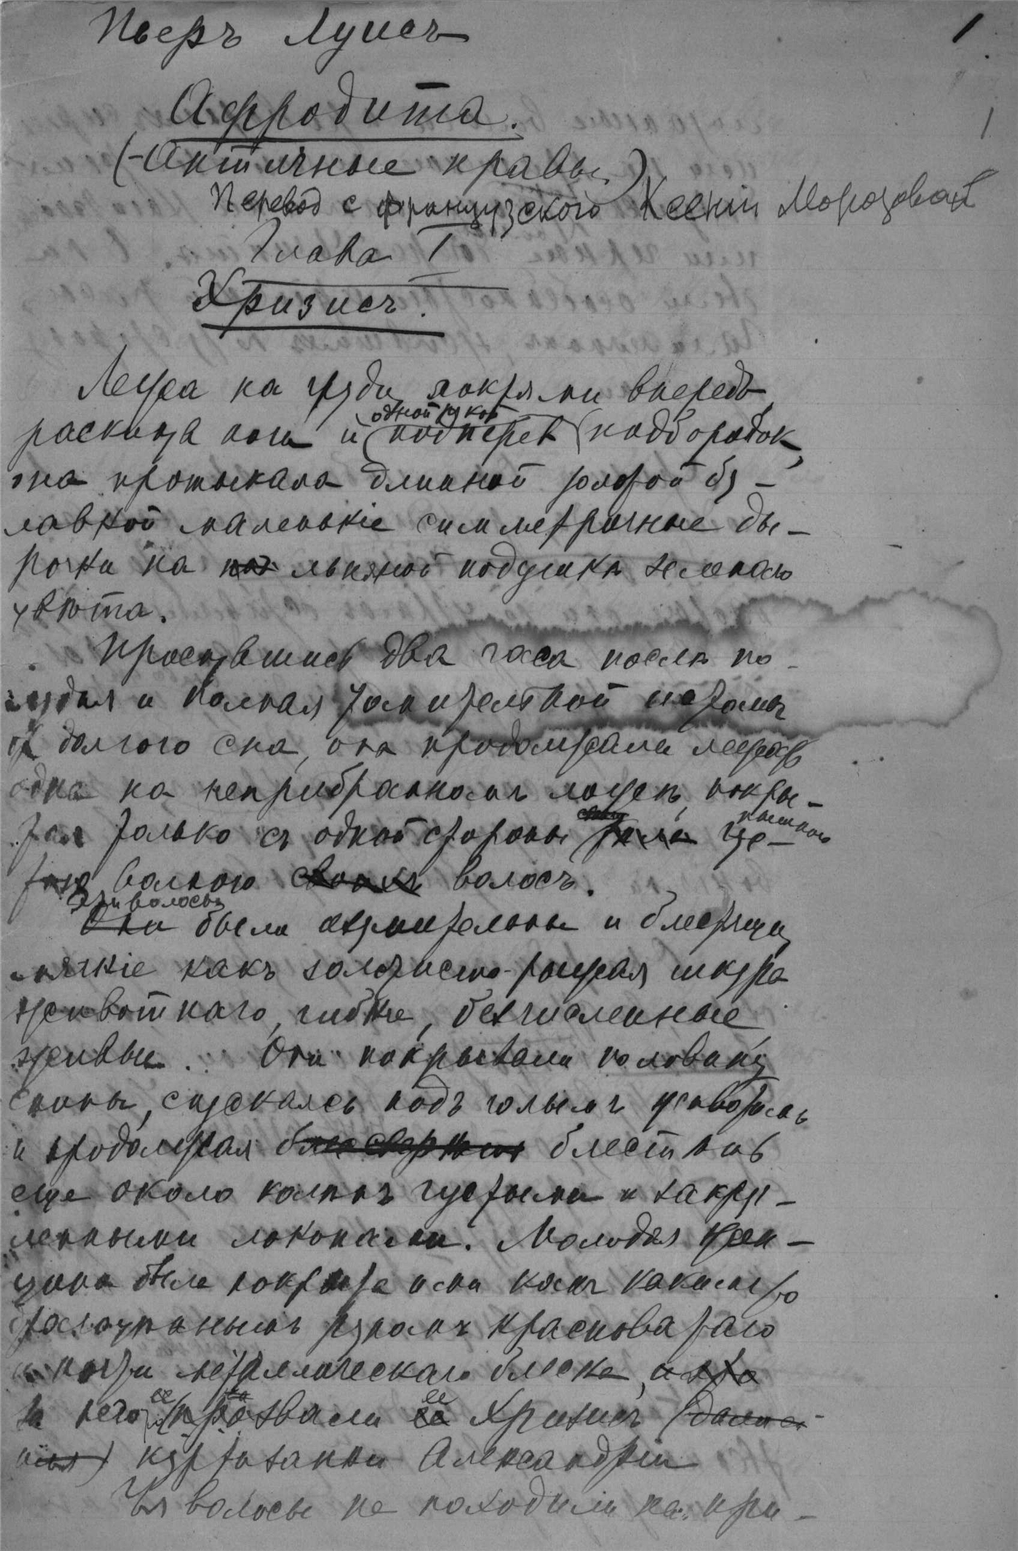 1
Пьеръ Луисъ
1
Афродита.
(Античные нравы)
Перевод с французского Ксении Морозовой
Глава I
Хризисъ.
Лежа на груди, локтями впередъ,
раскинув ноги и одной рукой подперев подбородок,
она протыкала длинной золотой бу-
лавкой маленькіе симметричные ды-
рочки на льняной подушкѣ зеленаго
цвѣта.
Проснувшись два часа послѣ по-
лудня и полная
долгого сна, она продолжала лежать
одна на неприбранномъ ложѣ, покры-
тая только съ одной стороны пышною
волною своихъ волосъ.
Они Эти волосы были ослѣпительны и блестящи,
мягкіе какъ золотисто-рыжая шкура
животнаго, гибкіе, безчисленные
живые. Они покрывали половину
спины, спускаясь подъ голымъ животомъ
и продолжая блестѣть
еще около колѣнъ густыми и закруг-
ленными локонами. Молодая жен-
щина была покрыта ими какъ какимъ то
драгоцѣннымъ руномъ красноватаго
и почти металлическаго блеска,
за него ее прозвали Хризисъ
куртизанки Александріи
Ея волосы не походили на при-